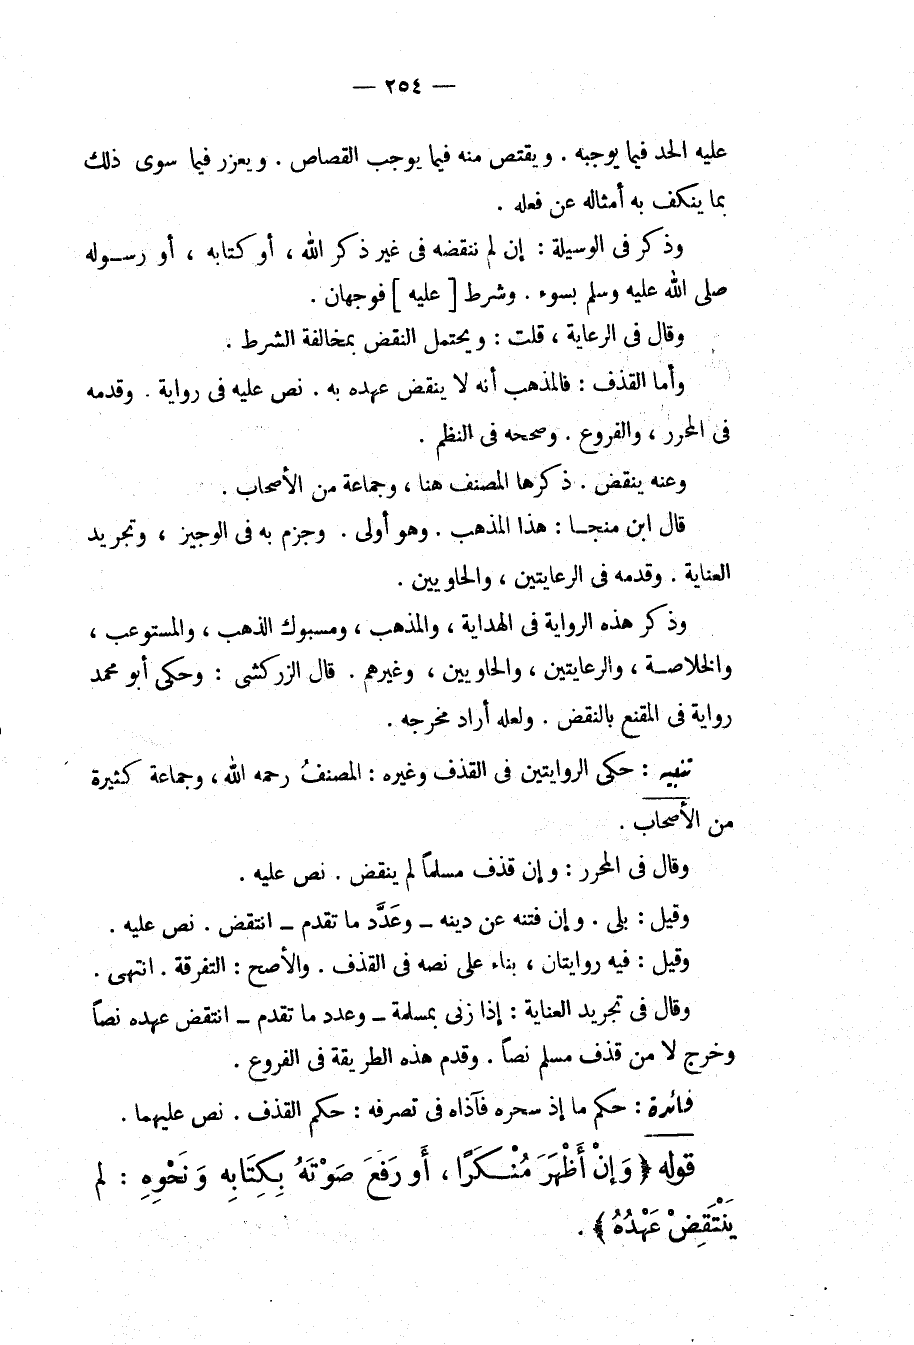 — ٢٥٤ —
عليه الحد فيما يوجبه . ويقتص منه فيما يوجب القصاص . ويعزر فيما سوى ذلك
بما ينكف به أمثاله عن فعله .
وذكر فى الوسيلة : إن لم ننقضه فى غير ذكر الله ، أو كتابه ، أو رسـوله
صلى الله عليه وسلم بسوء . وشرط [ عليه ] فوجهان .
وقال فى الرعاية ، قلت : ويحتمل النقض بمخالفة الشرط .
وأما القذف : فالمذهب أنه لا ينقض عهده به . نص عليه فى رواية . وقدمه
فى المحرر ، والفروع . وصححه فى النظم .
وعنه ينقض . ذكرها المصنف هنا ، وجماعة من الأصحاب .
قال ابن منجـا : هذا المذهب . وهو أولى . وجزم به فى الوجيز ، وتجريد
العناية . وقدمه فى الرعايتين ، والحاويين .
وذكر هذه الرواية فى الهداية ، والمذهب ، ومسبوك الذهب ، والمستوعب ،
والخلاصـة ، والرعايتين ، والحاويين ، وغيرهم . قال الزركشى : وحكى أبو محمد
رواية فى المقنع بالنقض . ولعله أراد مخرجه .
تنبيه : حكى الروايتين فى القذف وغيره : المصنفُ رحمه الله ، وجماعة كثيرة
من الأصحاب .
وقال فى المحرر : وإن قذف مسلماً لم ينقض . نص عليه .
وقيل : بلى . وإن فتنه عن دينه ــ وعَدَّد ما تقدم ــ انتقض . نص عليه .
وقيل : فيه روايتان ، بناء على نصه فى القذف . والأصح : التفرقة . انتهى .
وقال فى تجريد العناية : إذا زنى بمسلمة ــ وعدد ما تقدم ــ انتقض عهده نصاً
وخرج لا من قذف مسلم نصاً . وقدم هذه الطريقة فى الفروع .
فائدة : حكم ما إذ سحره فآذاه فى تصرفه : حكم القذف . نص عليهما .
قوله ﴿ وَإِنْ أَظْهَرَ مُنْـكَرًا ، أَو رَفَعَ صَوْتَهُ بِكِتَابِهِ وَنَحْوِهِ : لم
يَنْتَقِضْ عَهْدُهُ ﴾ .